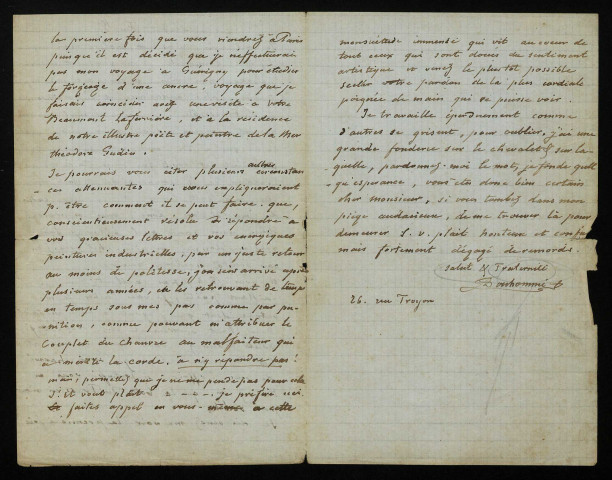 la première fois que vous viendrez à Paris
puisqu'il est décidé que je n'effectuerai
pas mon voyage à Guérigny pour étudier
le forgeage d'une ancre, voyage que je
faisais coincider avec une visite à votre
Beaumont Laferrière, et à la résidence
de notre illustre poëte et peintre de la Mer
théodore Gudin.
Je pourrais vous citer plusieurs autres circonstan
ces attenuantes qui vous expliqueraient
p. être comment il se peut faire que,
conscientieusement résolu de répondre à
vos gracieuses lettres et vos energiques
peintures industrielles, par un juste retour
au moins de politesse, j'en sois arrivé après
plusieurs années, de les retrouvant de temps
en temps sous mes pas comme par pu-
nition, comme pouvant m'attribuer le
Couplet du Chanvre au malfaiteur qui
a mérité la corde, de n'y répondre pas!
mais permettez que je ne me pende pas pour cela
S'il vous plait - je préfère
faites appel en vous même a cette
mansuétude immense qui vit au coeur de
tout ceux qui sont doués de sentiment
artistique et venez le plustot possible
sceller votre pardon de la plus cordiale
poignée de main qui se puisse voir.
Je travaille éperdument comme
d'autres se grisent, pour oublier, j'ai une
grande fonderie sur le chevalet sur la-
quelle, pardonnez-moi le mot, je fonde quel
qu'esprance, vous etes donc bien certain
cher monsieur, si vous tombez dans mon
piège audacieux, de me trouver là pour
demeurer S. v. plait honteux et confus
mais fortement dégagé de remords.
salut & Fraternité
Bonhommé f
26. rue Troyon